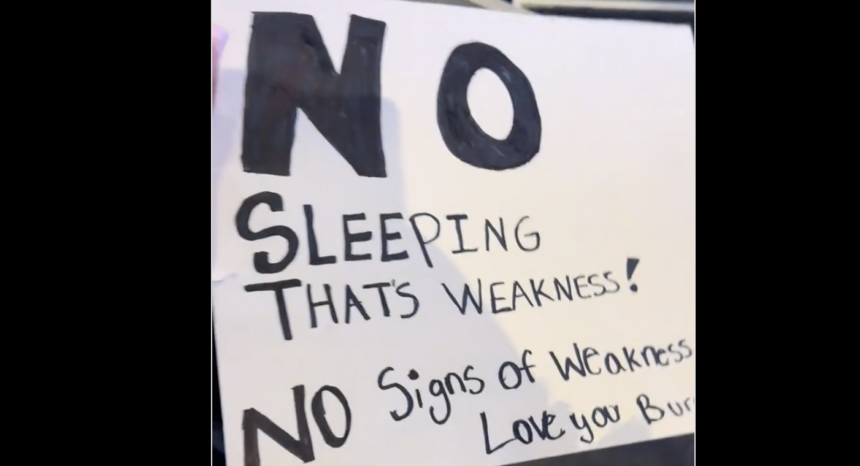 NO
SLEEPING
THAT'S WEAKNESS!
NO Signs of Weakness
Love you